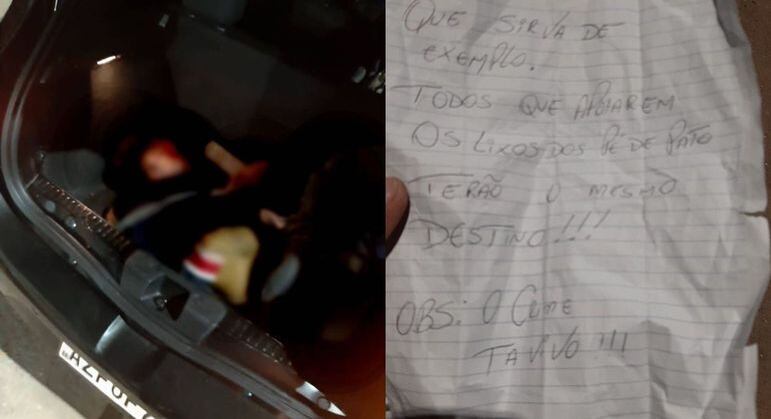 QUE SIRVA DE
EXEMPLO.
TODOS QUE APOIAREM
OS LIXOS DOS PÉ DE PATO
TERÃO O MESMO
DESTINO!!!
OBS: O CRIME
TA VIVO!!!